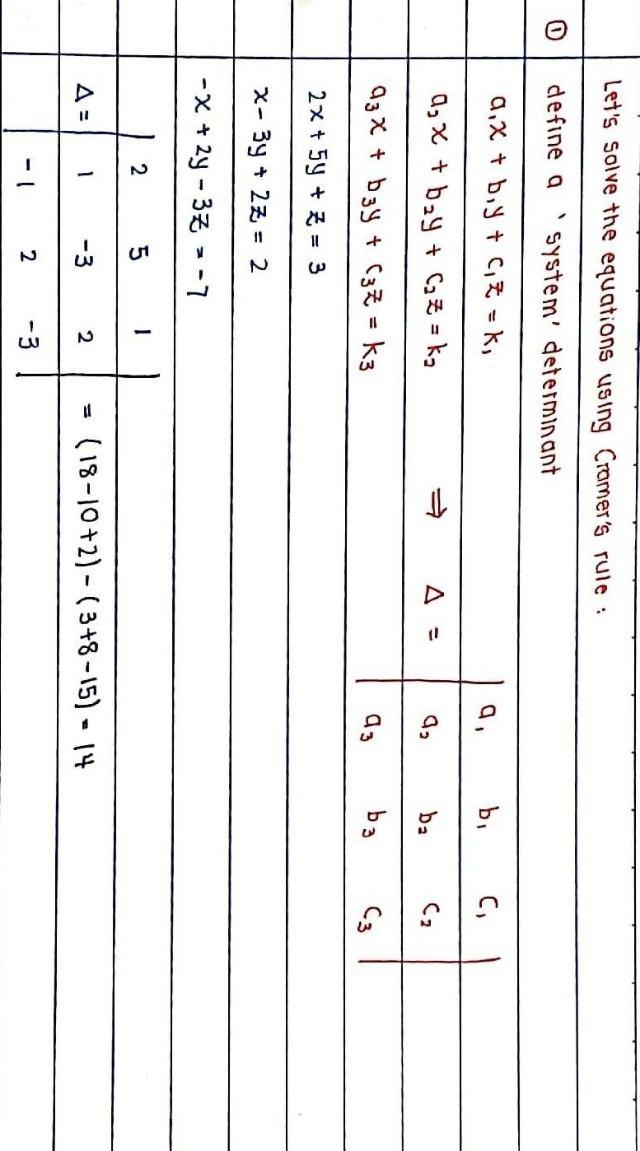 Let's solve the equations using Cramer's rule :
① define a 'system' determinant
a₁x + b₁y + c₁z = k₁
a₂x + b₂y + c₂z = k₂ ⇒ Δ =
a₃x + b₃y + c₃z = k₃
| a₁ b₁ c₁ |
| a₂ b₂ c₂ |
| a₃ b₃ c₃ |
2x + 5y + z = 3
x - 3y + 2z = 2
-x + 2y - 3z = -7
| 2 5 1 |
Δ = | 1 -3 2 | = (18-10+2) - (3+8-15) = 14
| -1 2 -3 |